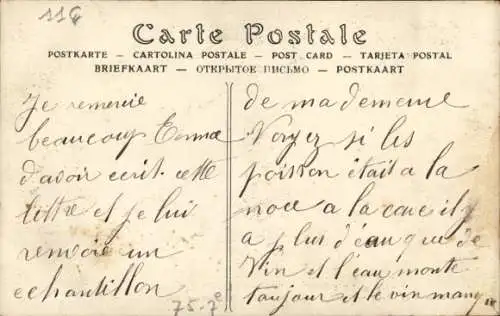 116
Carte Postale
POSTKARTE — CARTOLINA POSTALE — POST CARD — TARJETA POSTAL
BRIEFKAART — ОТКРЫТОЕ ПИСЬМО — POSTKAART
Je remercie
beaucoup Emma
d'avoir ecrit cette
lettre et je lui
renvoie un
echantillon
de ma demeure
Voyez si les
poisson était a la
noce a la cave il y
a plus d'eau que de
Vin et l'eau monte
toujour et le vin manque
75-7e